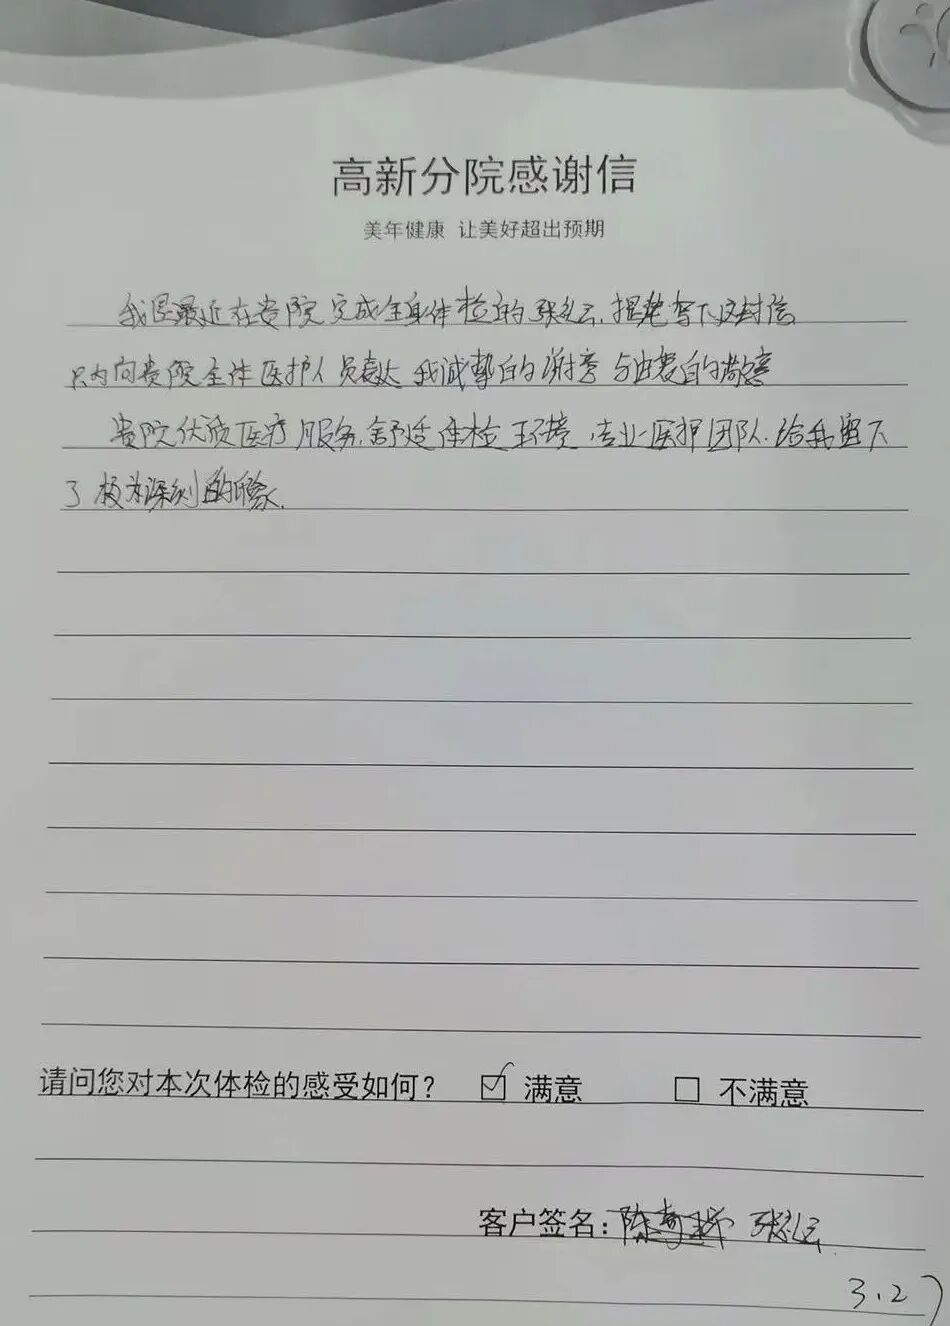 高新分院感谢信
美年健康 让美好超出预期
我是最近在贵院完成全身体检的张礼云,提笔写下这封信
只为向贵院全体医护人员表达我诚挚的谢意与由衷的敬意
贵院优质医疗服务,舒适体检环境,专业医护团队,给我留下
了极为深刻的印象.
请问您对本次体检的感受如何? ☑ 满意 □ 不满意
客户签名: 张礼云
3.27